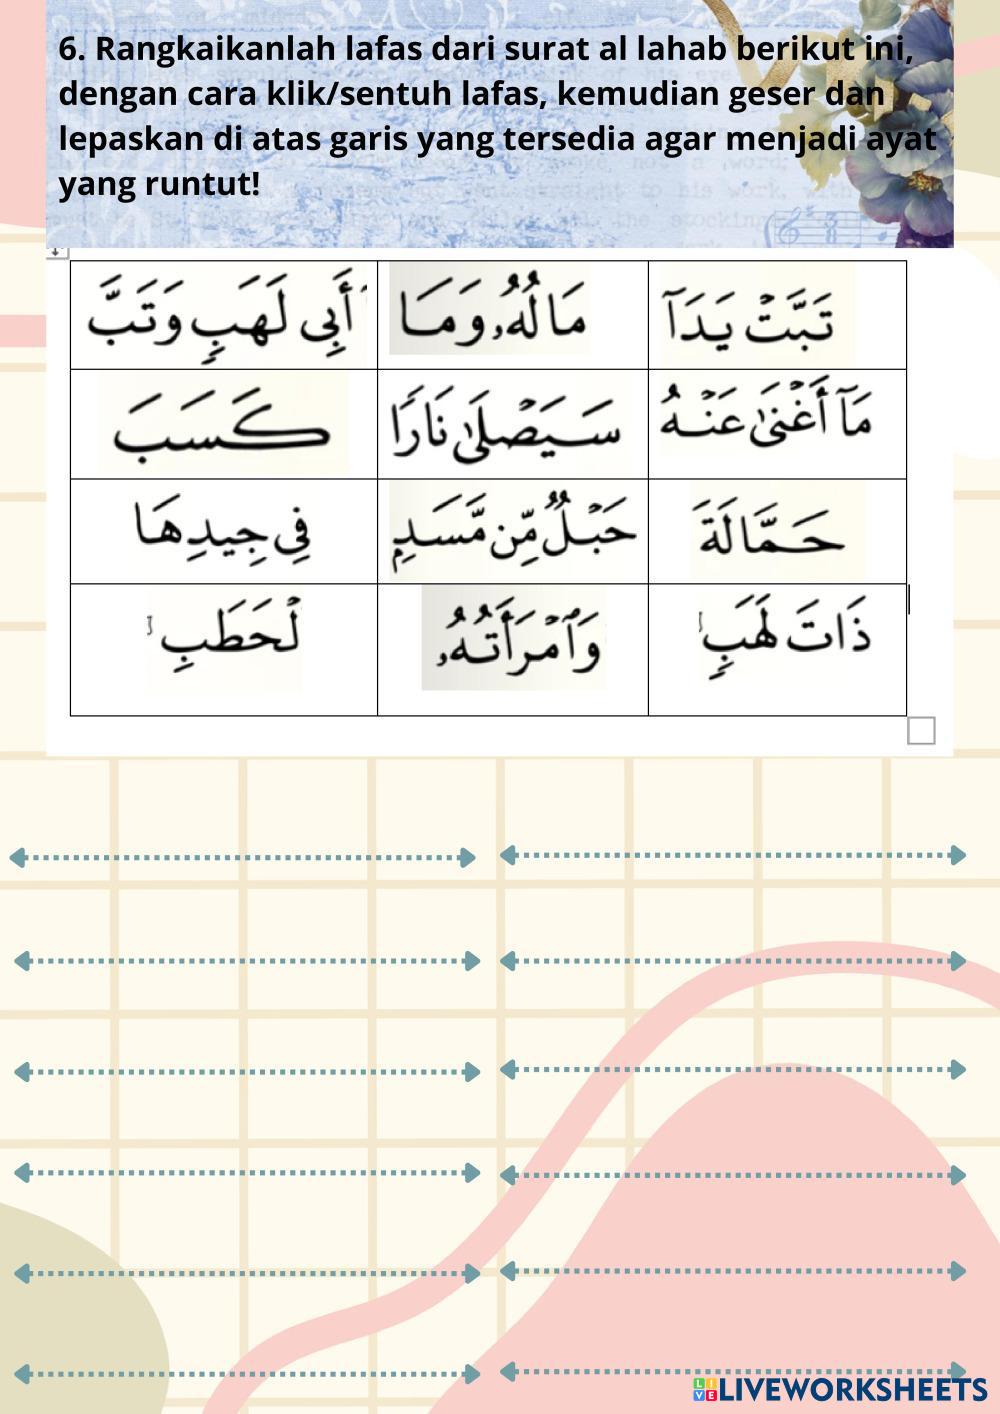 6. Rangkaikanlah lafas dari surat al lahab berikut ini,
dengan cara klik/sentuh lafas, kemudian geser dan
lepaskan di atas garis yang tersedia agar menjadi ayat
yang runtut!
تَبَّتْ يَدَآ
مَالُهُۥ وَمَا
أَبِى لَهَبٍ وَتَبَّ
مَآ أَغْنَىٰ عَنْهُ
سَيَصْلَىٰ نَارًا
كَسَبَ
حَمَّالَةَ
حَبْلٌ مِّن مَّسَدٍ
فِى جِيدِهَا
ذَاتَ لَهَبٍ
وَٱمْرَأَتُهُۥ
لْحَطَبِ
LIVEWORKSHEETS